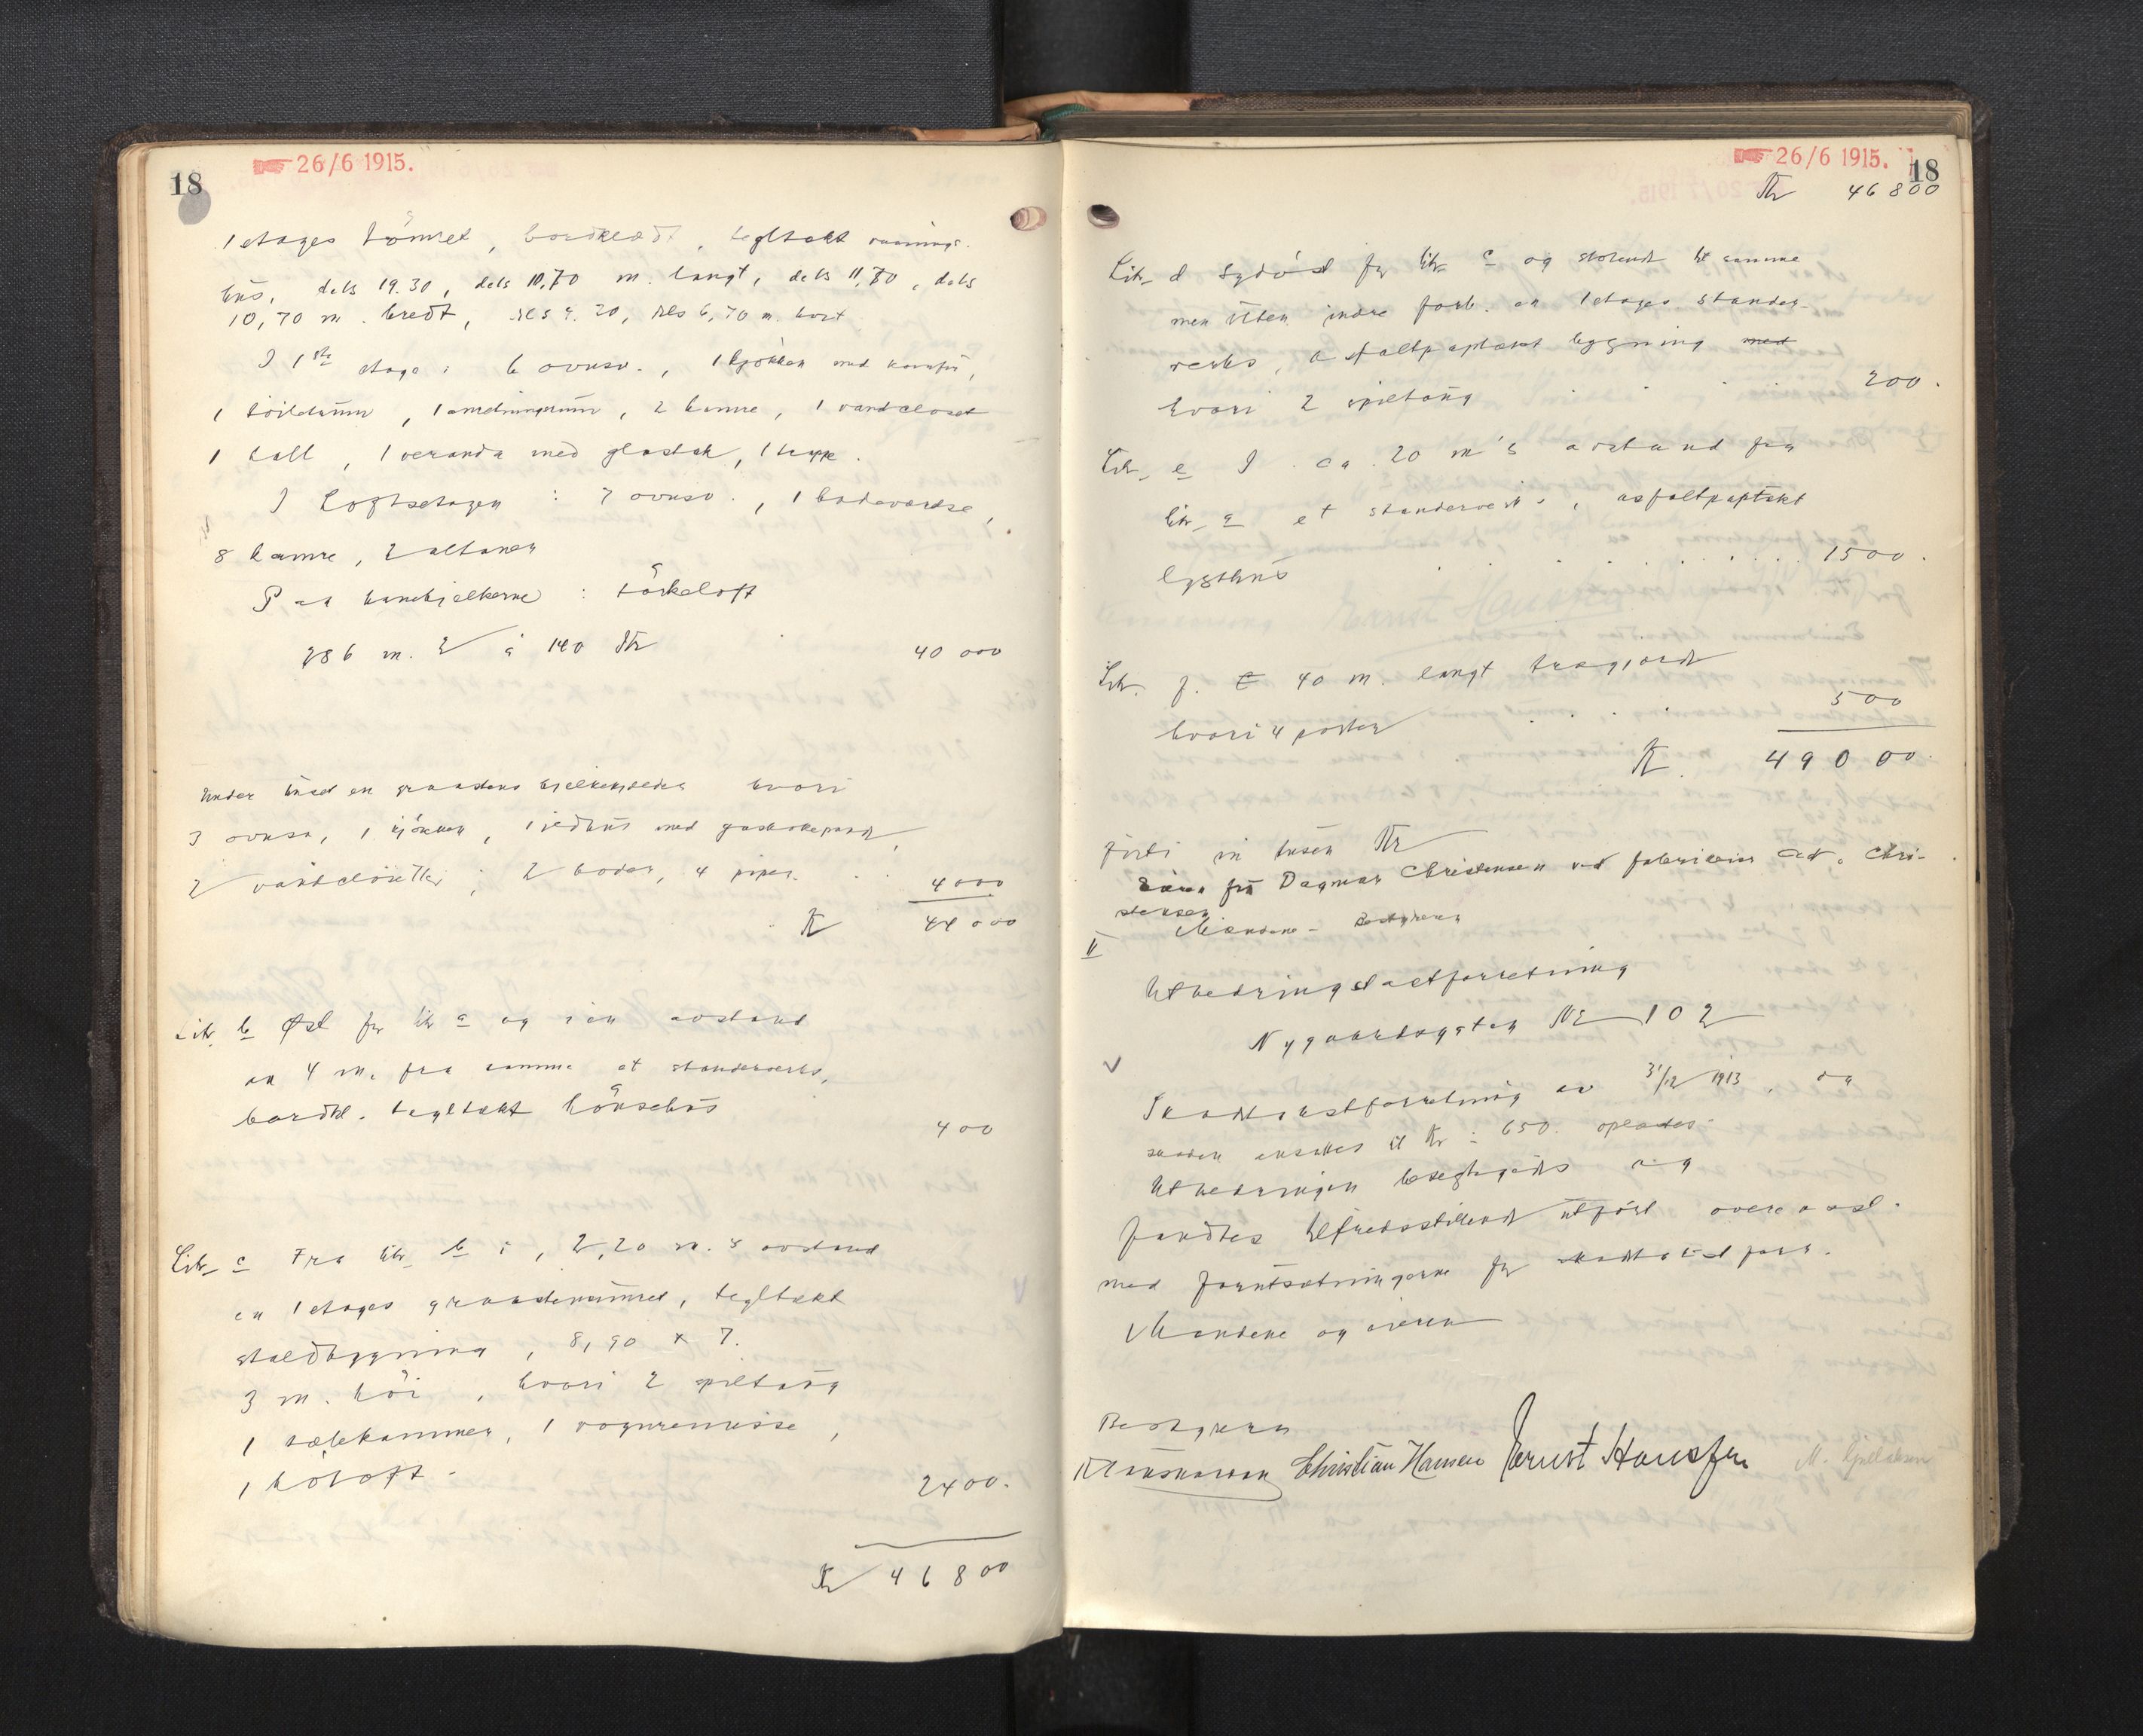 18
26/6 1915.
1 etages tømret, bordklædt, tegltækt vaanings-
hus, dels 19.30, dels 10,70 m. langt, dels 11,70, dels
10,70 m. bredt, dels 9.20, dels 6,70 m. høit
I 1ste etage: 6 ovnsv., 1 kjøkken med komfur,
1 toiletrum, 1 anretningsrum, 2 kamre, 1 vandcloset
1 hall, 1 veranda med glastak, 1 trappe.
I Loftsetagen: 7 ovnsv., 1 badeværelse,
8 kamre, 2 altaner
Paa hanebjelkerne: tørkeloft
286 m. 2 á 140 Kr 40 000
Under huset en graastens kjelkekjelder hvori
3 ovnsv, 1 kjøkken, 1 ildhus med
2 vandclosetter, 2 boder, 4 piper. 4000
Kr 44000
Litr. b Øst for litr a og i en avstand
av 4 m. fra samme et standerverks,
bordkl. tegltækt hønsehus
400
Litr. c Fra litr b i, 2,20 m.s avstand
en 1 etages graastensmuret, tegltækt
staldbygning, 8,90 x 7.
3 m. høi, hvori 2 spiltaug
1 sælekammer, 1 vognremisse,
1 høloft. 2400.
Kr 46800
26/6 1915.
18
Kr 46800
Litr. d Sydøst for litr c og støtende til samme
men uten indre forb. en 1 etages stander-
verks, asfaltpaptækt bygning med
hvori 2 spiltaug 200.
Litr. e I ca. 20 m's avstand fra
litr a et standerverks, asfaltpaptækt
lysthus 1500.
Litr. f. Et 40 m. langt
hvori 4 porter 500
Kr. 49000.
førti ni tusen Kr
Eier fru Dagmar Christensen ved fabrikeier Chri-
stensen
Mændene - Bestyreren
II
Utbedringstaxtforretning
Nygaardsgaten No 102
Skadetaxtforretning av 31/12 1913, da
skaden ansattes til Kr: 650. oplæstes.
Utbedringen besigtigedes og
fandtes tilfredsstillende utført overensst.
med forutsætningerne for skadetaxtforr.
Mændene og eieren
Bestyreren
Christian Hansen Ernst Hansen